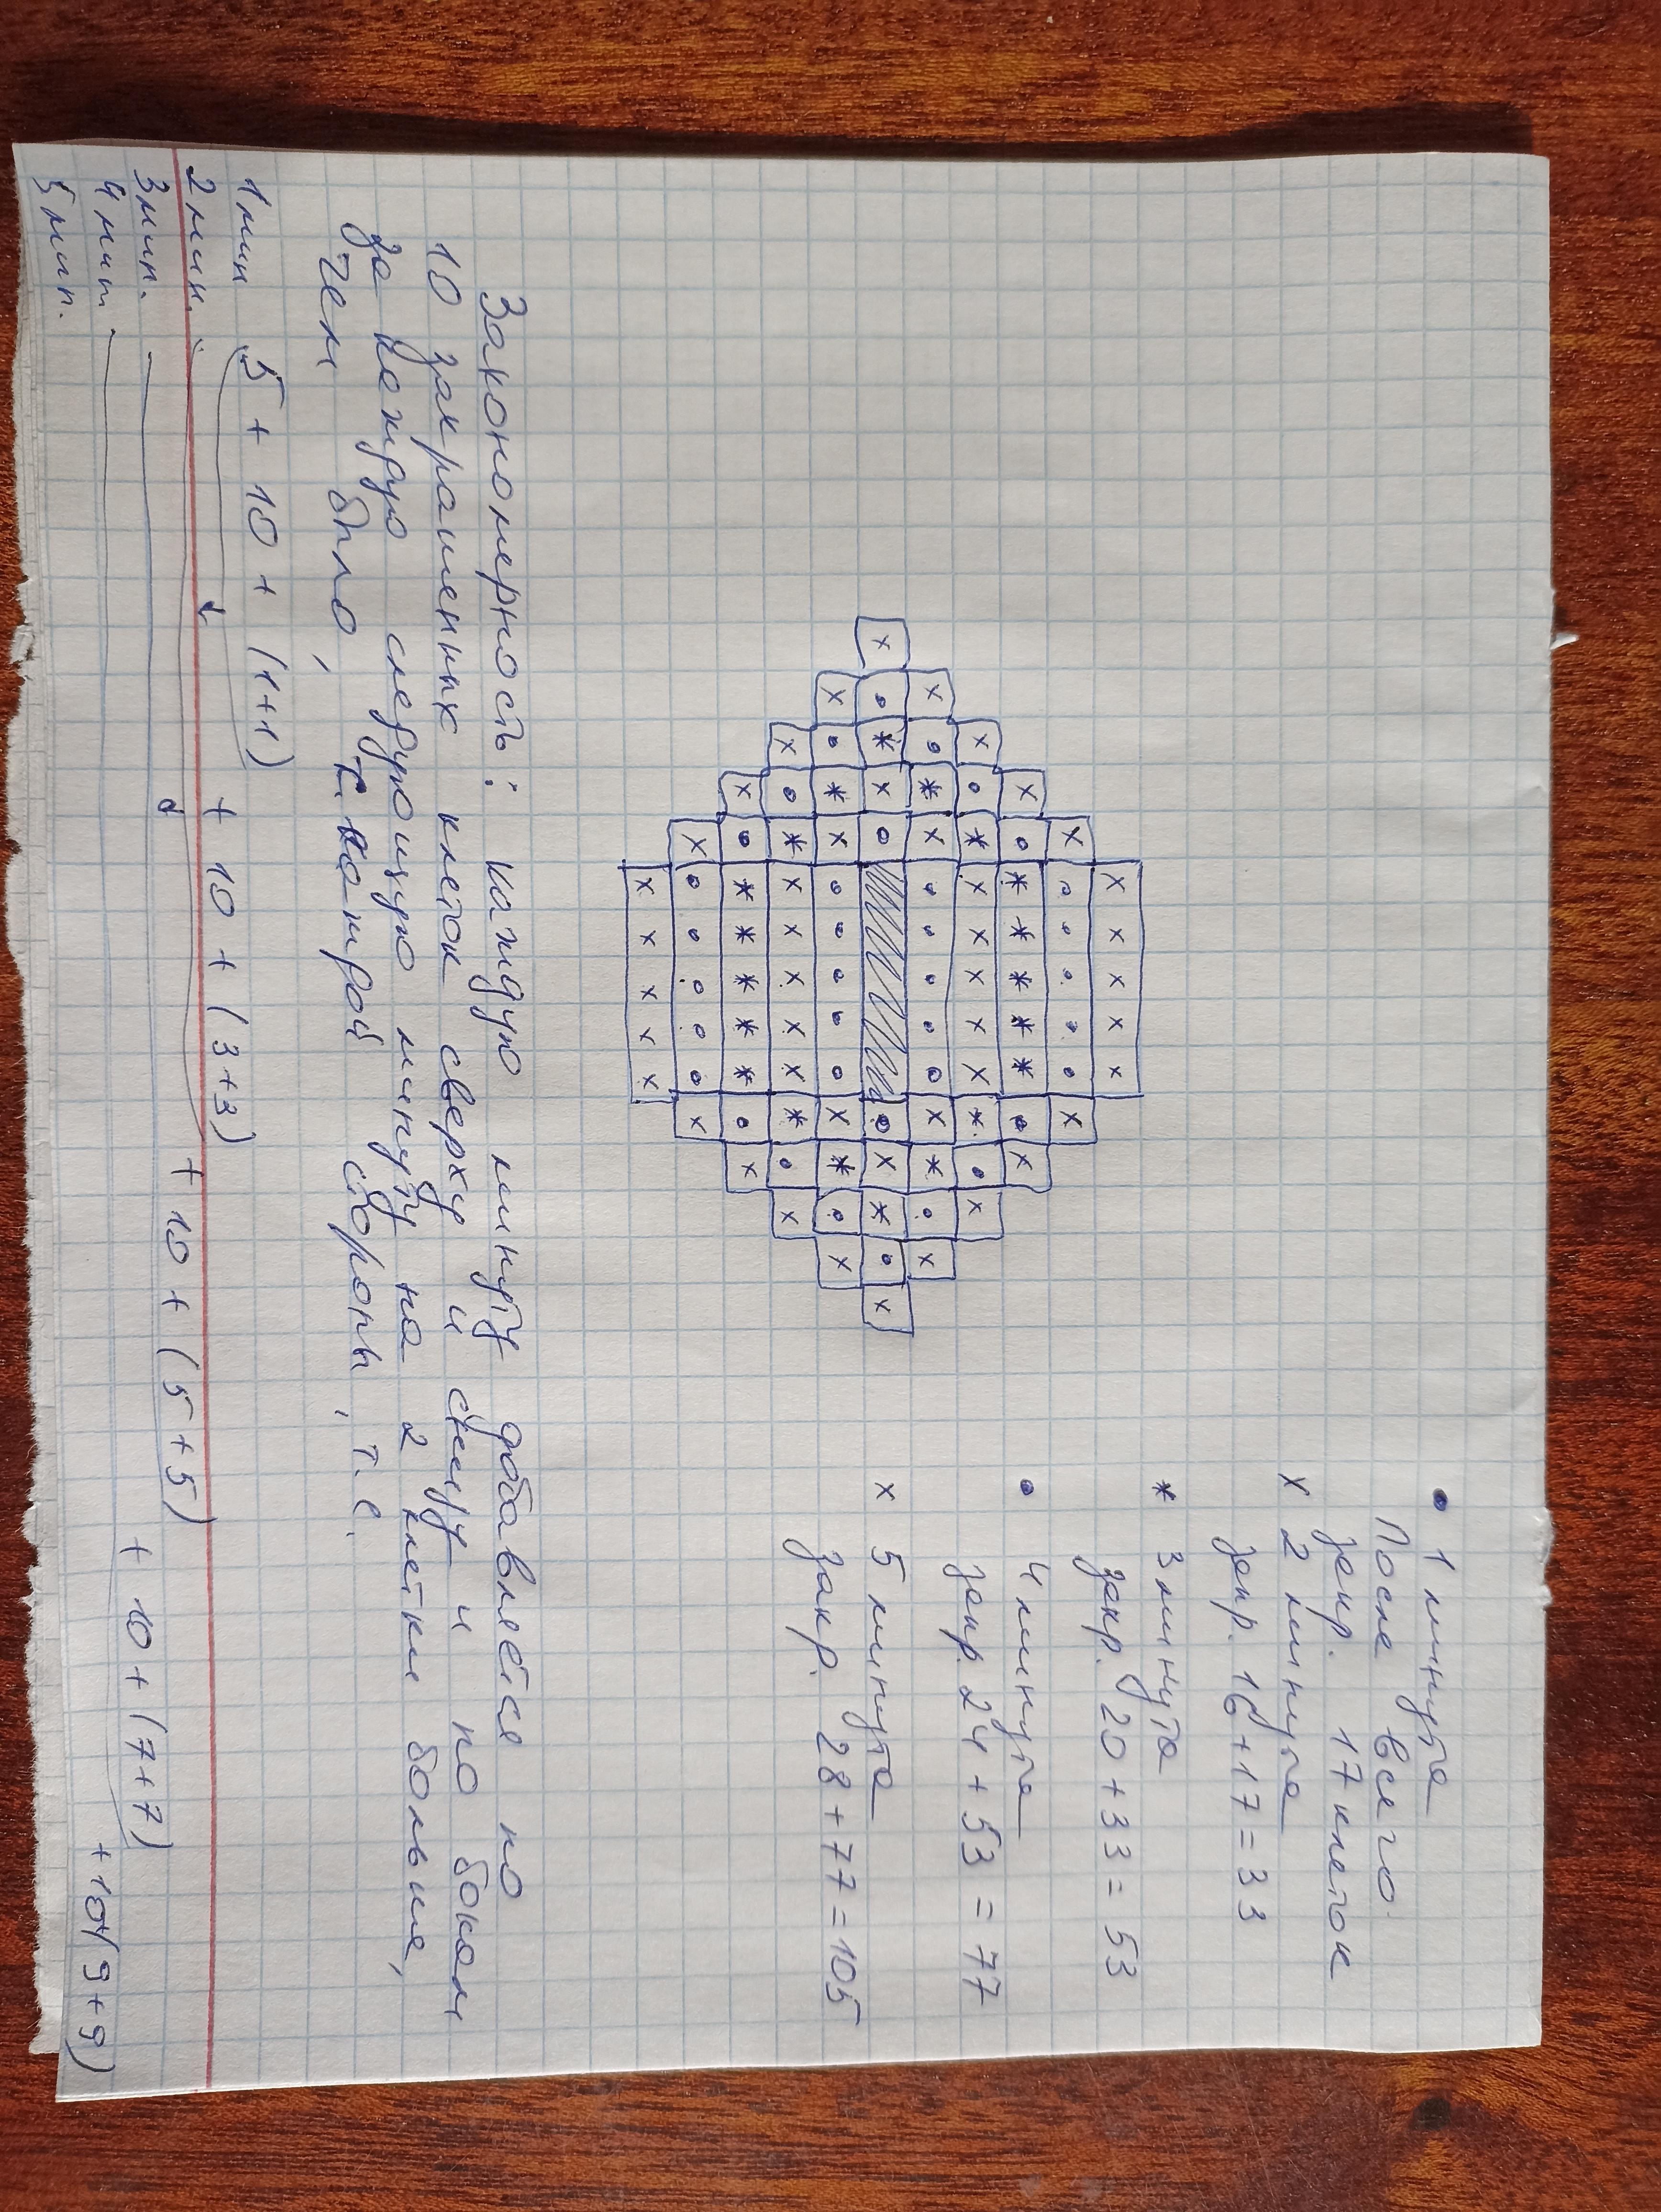 • 1 минута
После всего
закр. 17 клеток
х 2 минута
закр. 16 + 17 = 33
* 3 минута
закр. 20 + 33 = 53
• 4 минута
закр. 24 + 53 = 77
х 5 минута
закр. 28 + 77 = 105
Закономерность: каждую минуту добавляется по
10 закрашенных клеток сверху и снизу и по бокам
за каждую следующую минуту на 2 клетки больше,
чем было, с которой стороны, т.е.
1 мин 5 + 10 + (1+1)
2 мин. + 10 + (3+3)
3 мин. + 10 + (5+5)
4 мин. + 10 + (7+7)
5 мин. + 10 + (9+9)